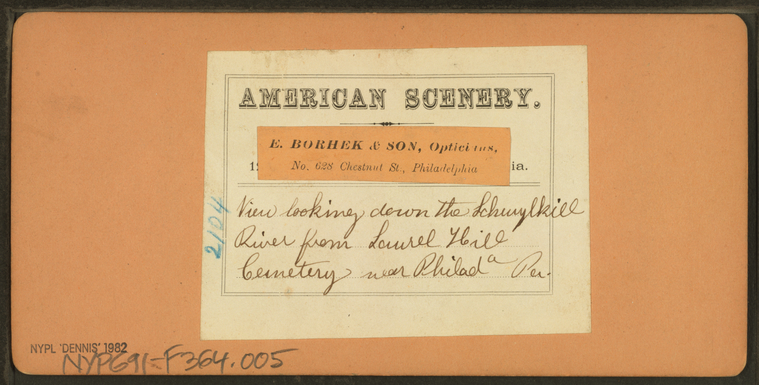 AMERICAN SCENERY.
E. BORHEK & SON, Opticians,
No. 628 Chestnut St., Philadelphia
12 ia.
View looking down the Schuylkill
River from Laurel Hill
Cemetery near Philada Pa.
2104
NYPL 'DENNIS' 1982
NYPG91-F364.005